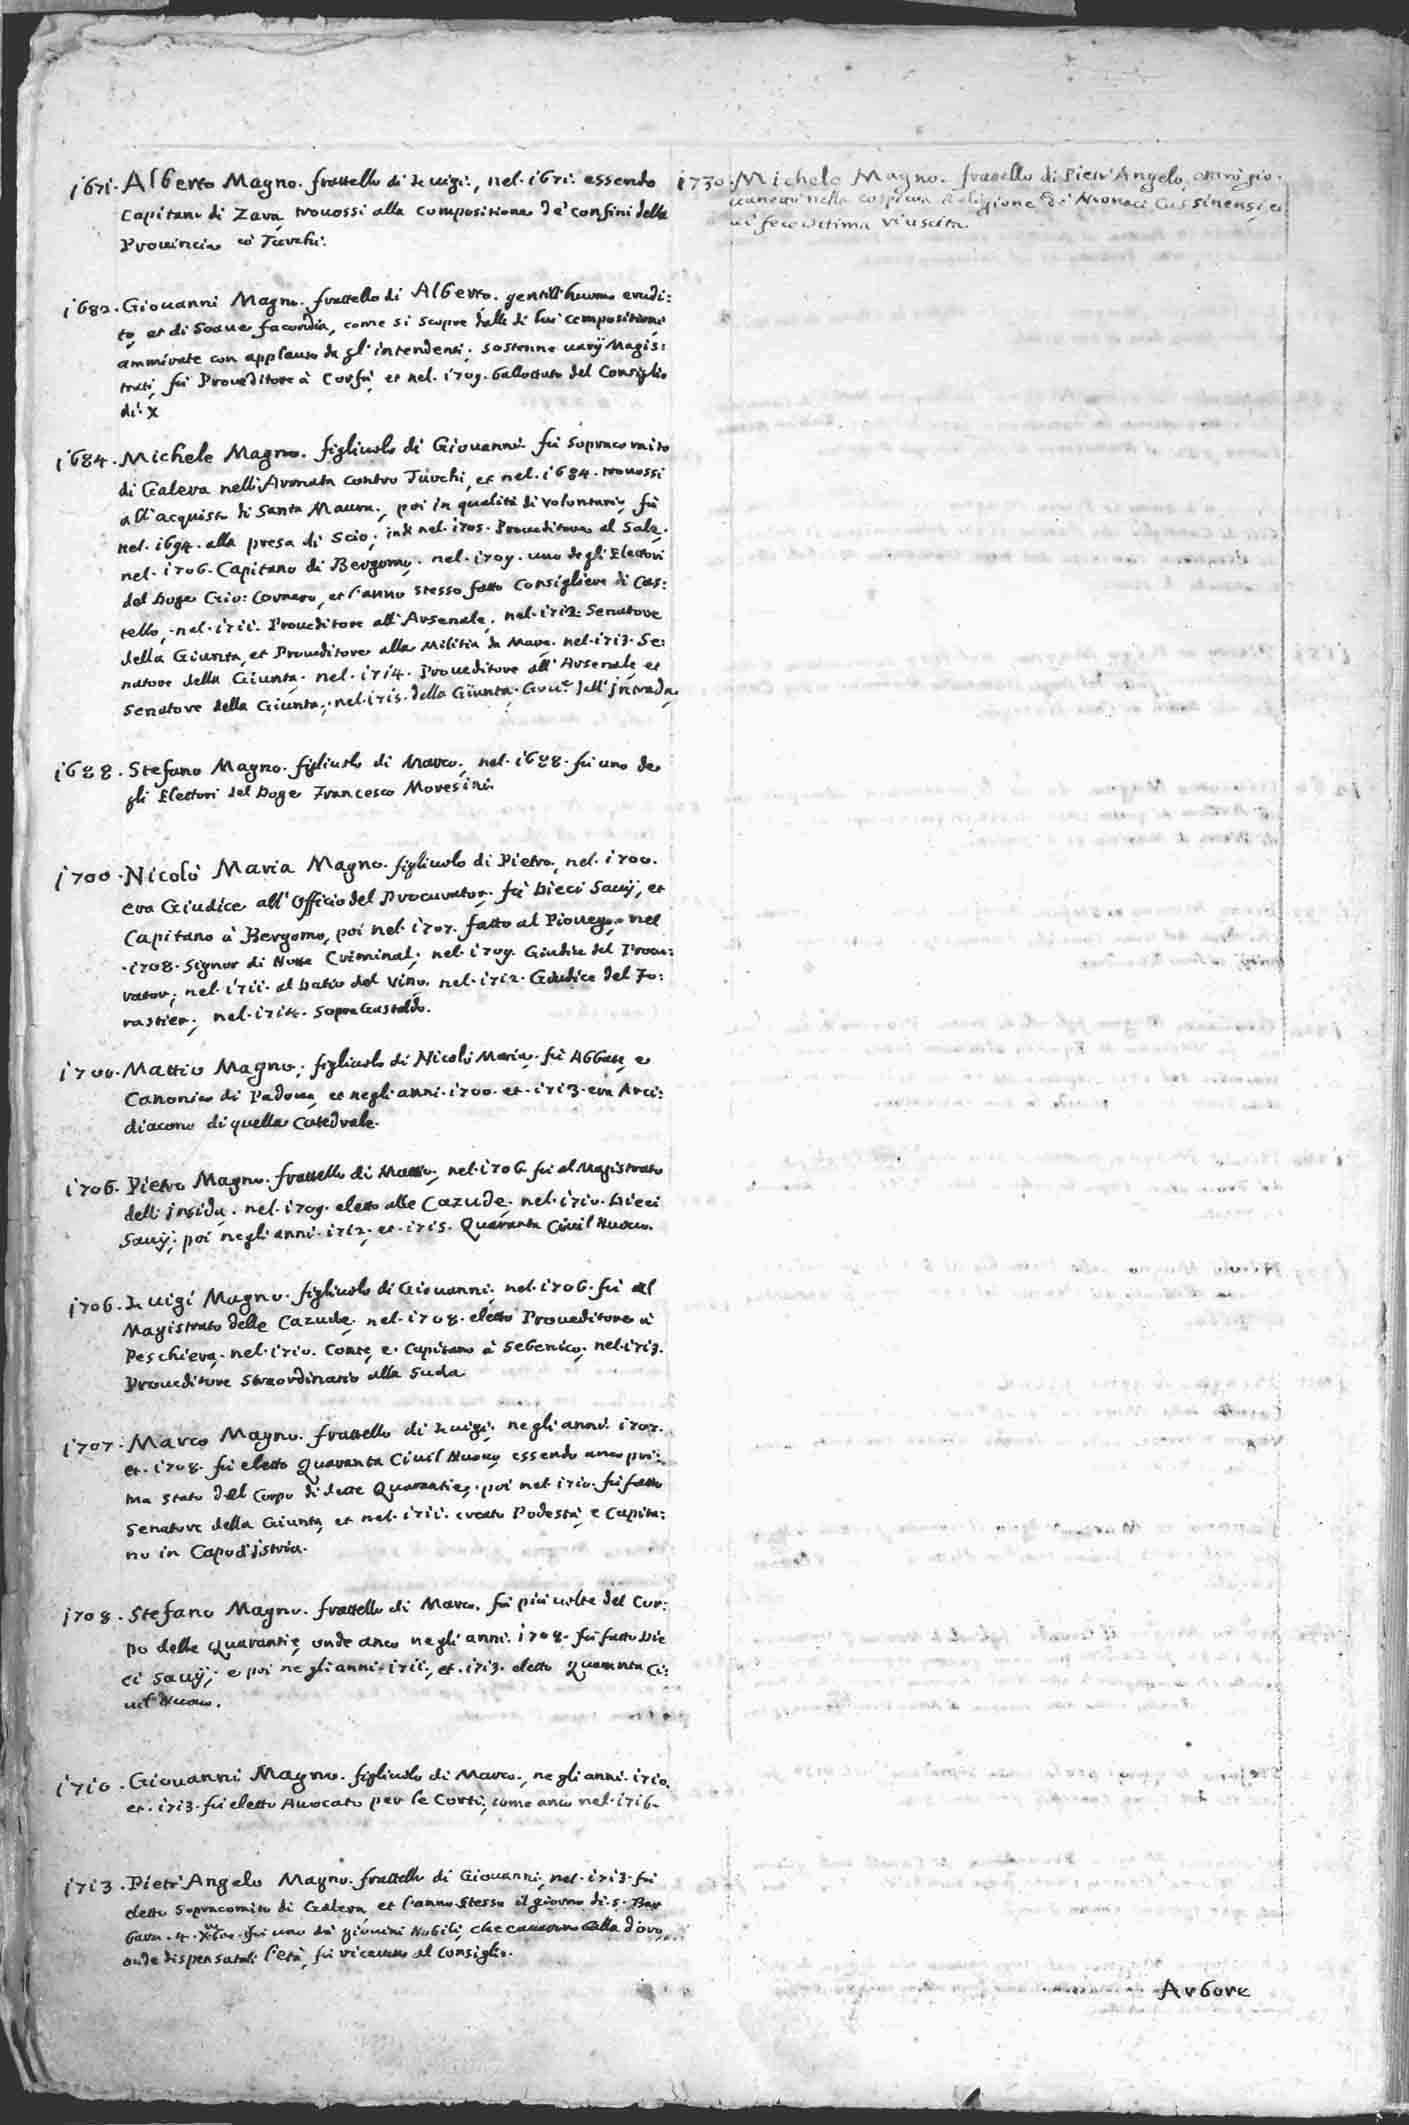 1671. Alberto Magno. frattello di Luigi:, nel. 1671. essendo
Capitano di Zara, trouossi alla compositione de' confini della
Prouincia co' Turchi.
1682. Giouanni Magno. frattello di Alberto. gentilhuomo erudi:
to, et di soaue facondia, come si scopre dalle di lui compositioni
ammirate con applauso da gl'intendenti; sostenne uarij Magis:
trati, fù Proueditore à Corfù, et nel. 1709. ballottato del Consiglio
di X
1684. Michele Magno. figliuolo di Giouanni. fù Sopracomito
di Galera nell'Armata contro Turchi, et nel. 1684. trouossi
all'acquisto di Santa Maura., poi in qualità di Volontario, fù
nel. 1694. alla presa di Scio; indi nel. 1705. Proueditore al Sale.
nel. 1706. Capitano di Bergomo. nel. 1709. uno degli Elettori
del Doge Gio: Cornaro, et l'anno stesso fatto Consigliere di Cas:
tello, nel. 1711. Proueditore all'Arsenale, nel. 1712. Senatore
della Giunta, et Proueditore alla Militia da Mare. nel. 1713. Se:
natore della Giunta. nel. 1714. Proueditore all'Arsenale, et
Senatore della Giunta, nel. 1715. della Giunta. Gou.r dell'Intrada.
1688. Stefano Magno. figliuolo di Marco, nel. 1688. fù uno de
gli Elettori del Doge Francesco Moresini.
1700. Nicolò Maria Magno. figliuolo di Pietro, nel. 1700.
era Giudice all'Officio del Procurator. fù Dieci Sauij, et
Capitano à Bergomo, poi nel. 1707. fatto al Piouego, nel
.1708. Signor di Notte Criminal; nel. 1709. Giudice del Procu:
rator, nel. 1711. al Datio del Vino. nel. 1712. Giudice del Fo:
rastier, nel. 1714. Sopra Gastaldo.
1700. Mattio Magno, figliuolo di Nicolò Maria. fù Abbate, e
Canonico di Padoua, et negli anni. 1700. et. 1713. era Arci:
diacono di quella Catedrale.
1706. Pietro Magno. frattello di Mattio, nel. 1706. fù al Magistrato
dell'Insida. nel. 1709. eletto alle Cazude. nel. 1710. Dieci
Sauij; poi negli anni. 1712, et. 1715. Quaranta Ciuil Nuouo.
1706. Luigi Magno. figliuolo di Giouanni. nel. 1706. fù al
Magistrato delle Cazude, nel. 1708. eletto Proueditore à
Peschiera. nel. 1710. Conte, e Capitano à Sebenico, nel. 1713.
Proueditore Straordinario alla Suda
1707. Marco Magno. frattello di Luigi. negli anni. 1707.
et. 1708. fù eletto Quaranta Ciuil Nuouo, essendo anco pri:
ma stato del Corpo di dette Quarantie, poi nel. 1710. fù fatto
Senatore della Giunta, et nel. 1711. creato Podestà, e Capita:
no in Capod'Istria.
1708. Stefano Magno. frattello di Marco. fù più uolte del Cor:
po delle Quarantie, onde anco negli anni. 1708. fù fatto Die
ci Sauij; e poi negli anni. 1711., et. 1713. eletto Quaranta Ci:
uil Nuouo.
1710. Giouanni Magno. figliuolo di Marco., negli anni. 1710.
et. 1713. fù eletto Auocato per le Corti, come anco nel. 1716.
1713. Pietr'Angelo Magno. frattello di Giouanni, nel. 1713. fù
eletto Sopracomito di Galera, et l'anno stesso il giorno di. S. Bar
bara. 4. Xbre. fù uno de' giouini Nobili, che cauorno balla d'oro,
onde dispensatali l'età, fù riceuuto al Consiglio.
1730. Michele Magno. fratello di Pietr'Angelo,
nella Religione de' Monaci Cassinensi, e
ui fece ottima riuscita.
Arbore